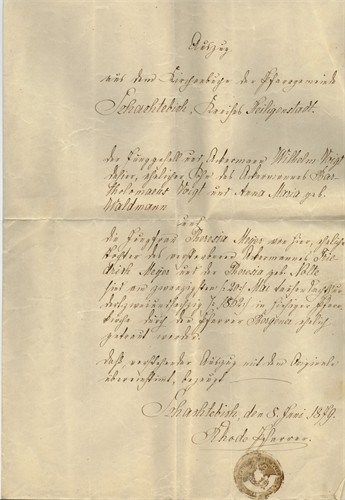 Auszug
aus dem Kirchenbuche der Pfarrgemeinde
Schachtebich, Kreises Heiligenstadt.
Der Junggesell und Ackermann Wilhelm Voigt
dahier, ehelicher Sohn des Ackermannes Bar-
tholomaeus Voigt und Anna Maria geb.
Waldmann
und
die Jungfrau Theresia Meyer von hier, eheliche
Tochter des verstorbenen Ackermannes Frie-
drich Meyer und der Theresia geb. Nolte
sind am zwanzigsten (20) Mai tausend acht
hundert zwei und sechzig (1862) in hiesiger Pfarr-
kirche durch den Pfarrer ehelich
getraut worden.
Daß vorstehender Auszug mit dem Originale
übereinstimmt, bezeugt
Schachtebich, den 8. Juni 1879.
Rhode Pfarrer.